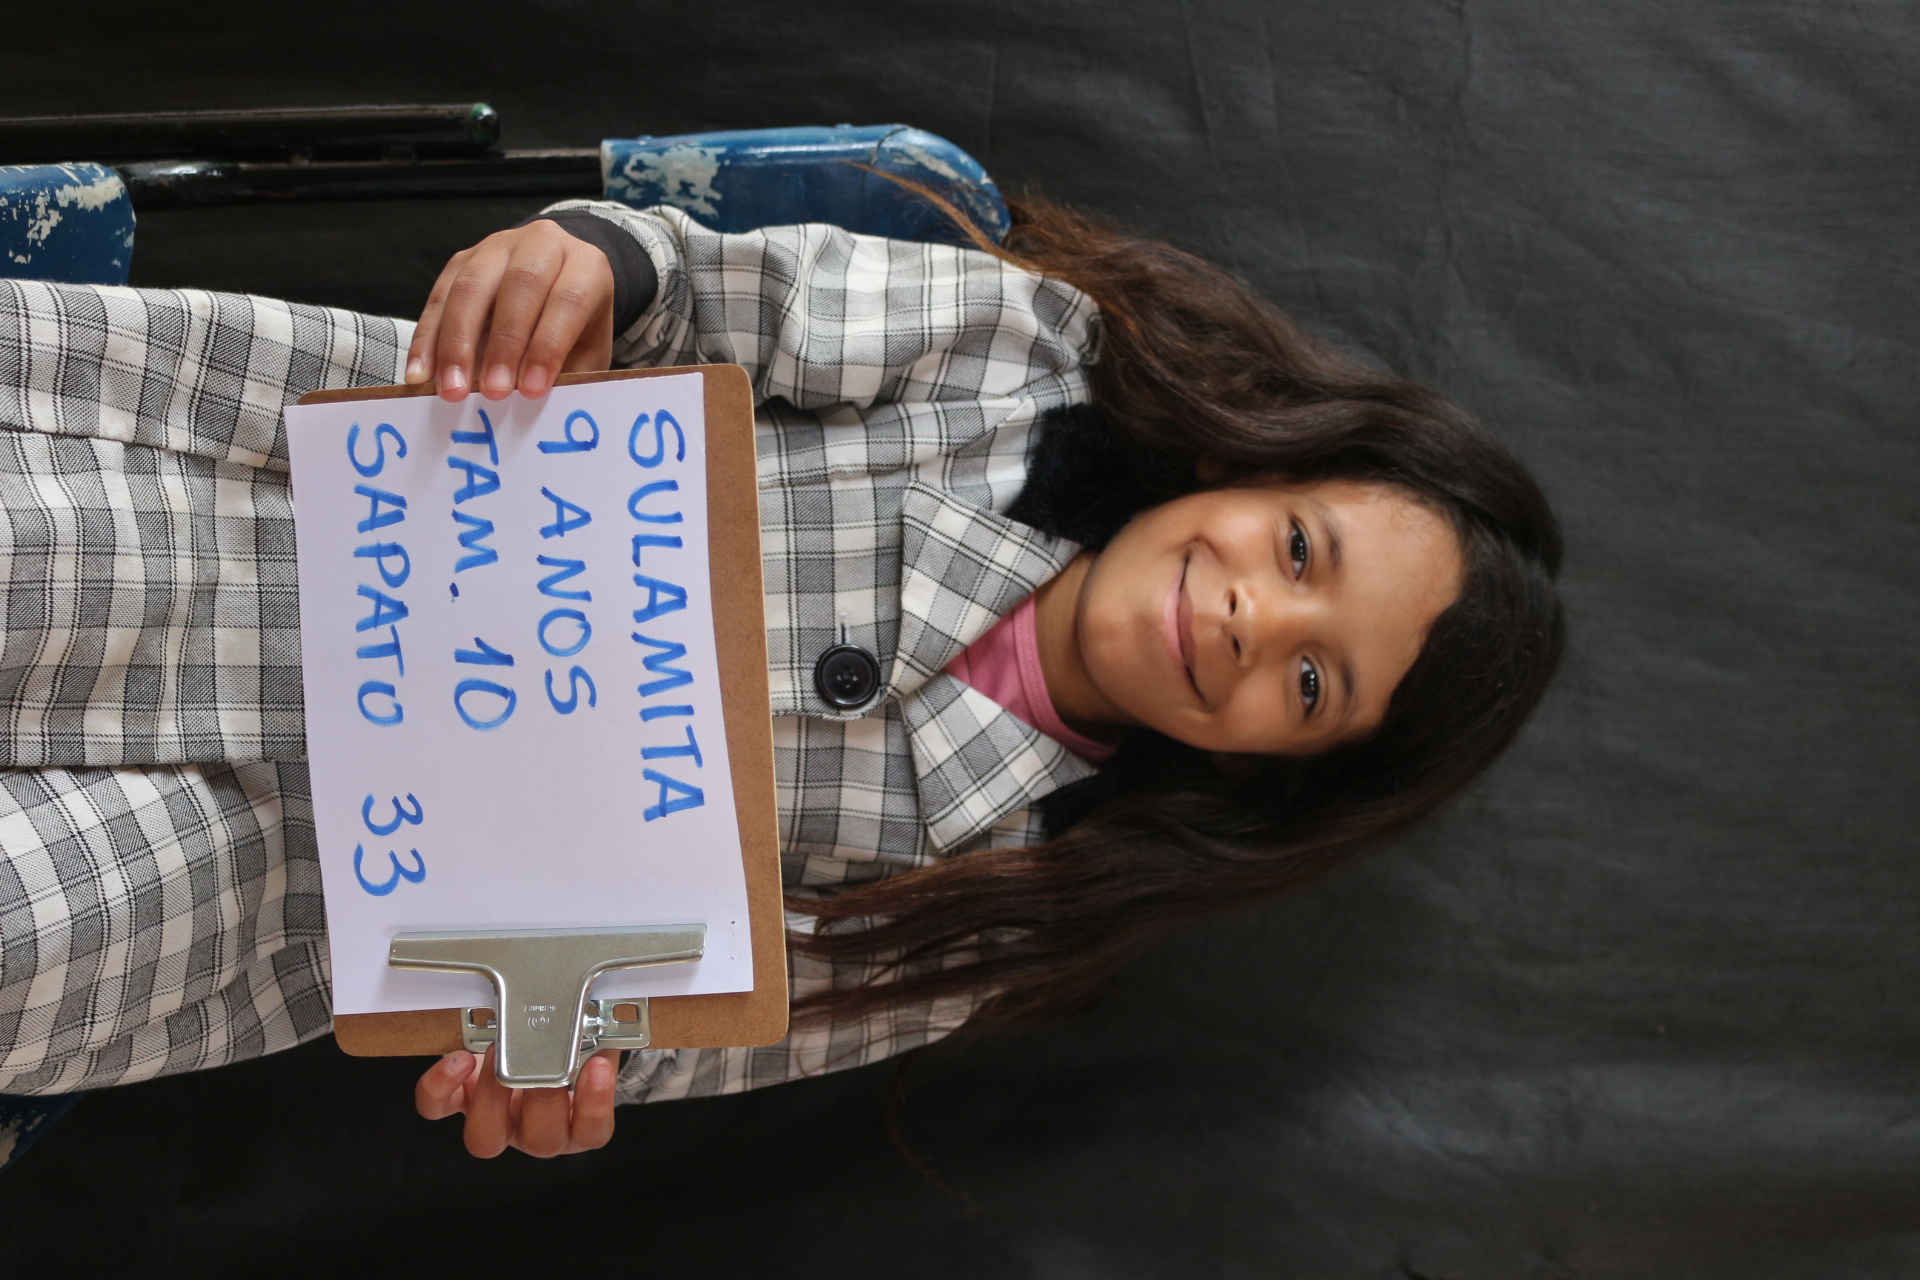 SULAMITA
9 ANOS
TAM. 10
SAPATO 33